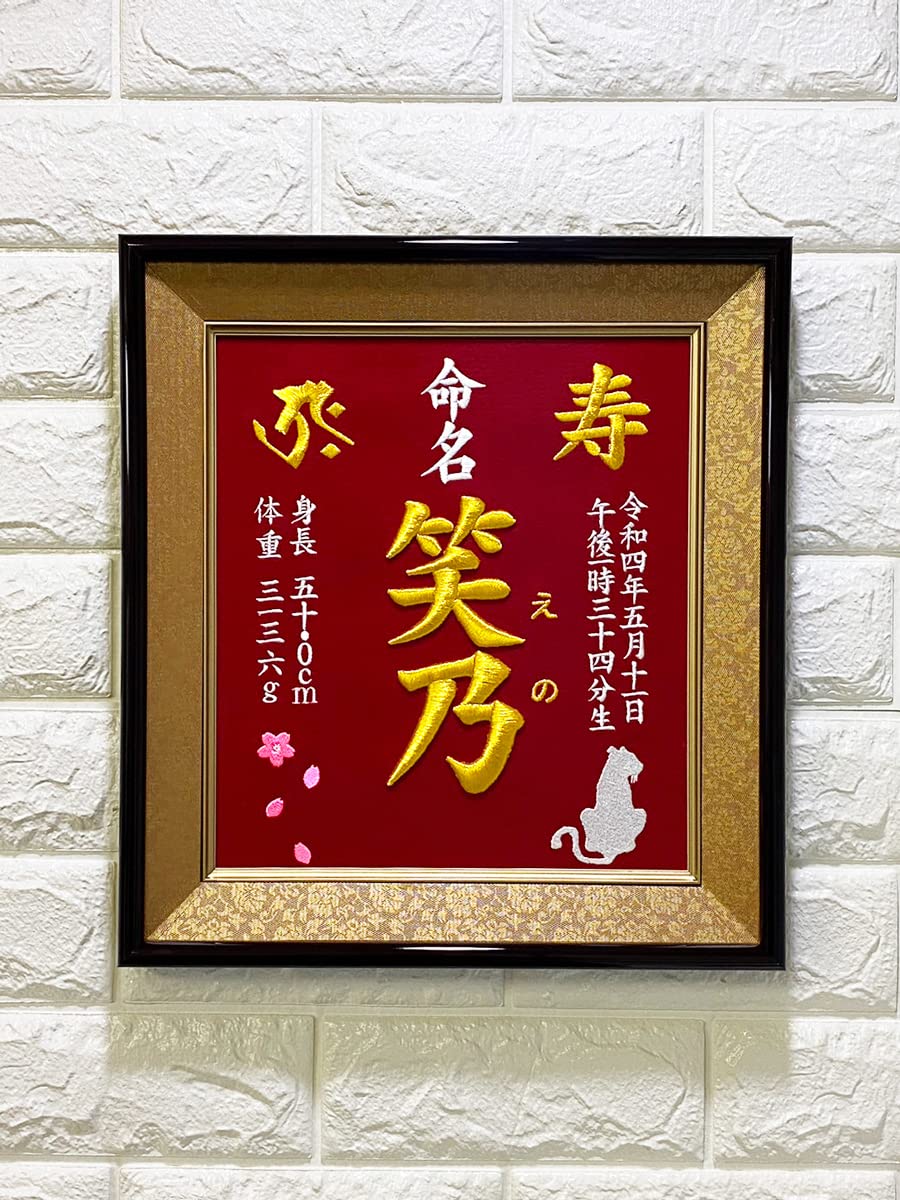 寿
令和四年五月十一日
午後一時三十四分生
命名
笑乃
えの
身長 五十・0cm
体重 三一三六g